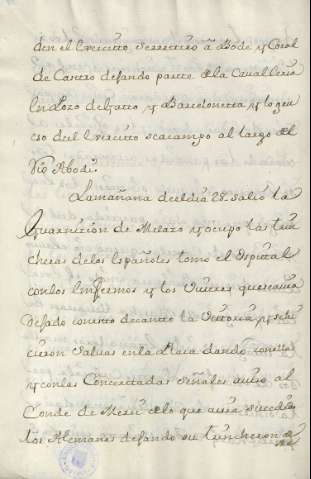 den el Exercito se retiro â Bode y Coral
de Cantro dejando parte de la Cavalleria
en Pozo de Gatto y Barcelonetta y lo grue
so del Exercito se acampo al largo del
Rio Rbodi.
La mañana del dia 28 salio la
Guarnicion de Melazo y ocupo las trin
cheras de los Españoles tomo el Ospital
con los Enfermos y los Viveres que se avia
dejado canto la Victoria y se hi
cieron salvas en la Plaza dando
y con las Concertadas señales aviso al
Conde de Merci de lo que avia sucedido
los Alemanes dejando su trincheron